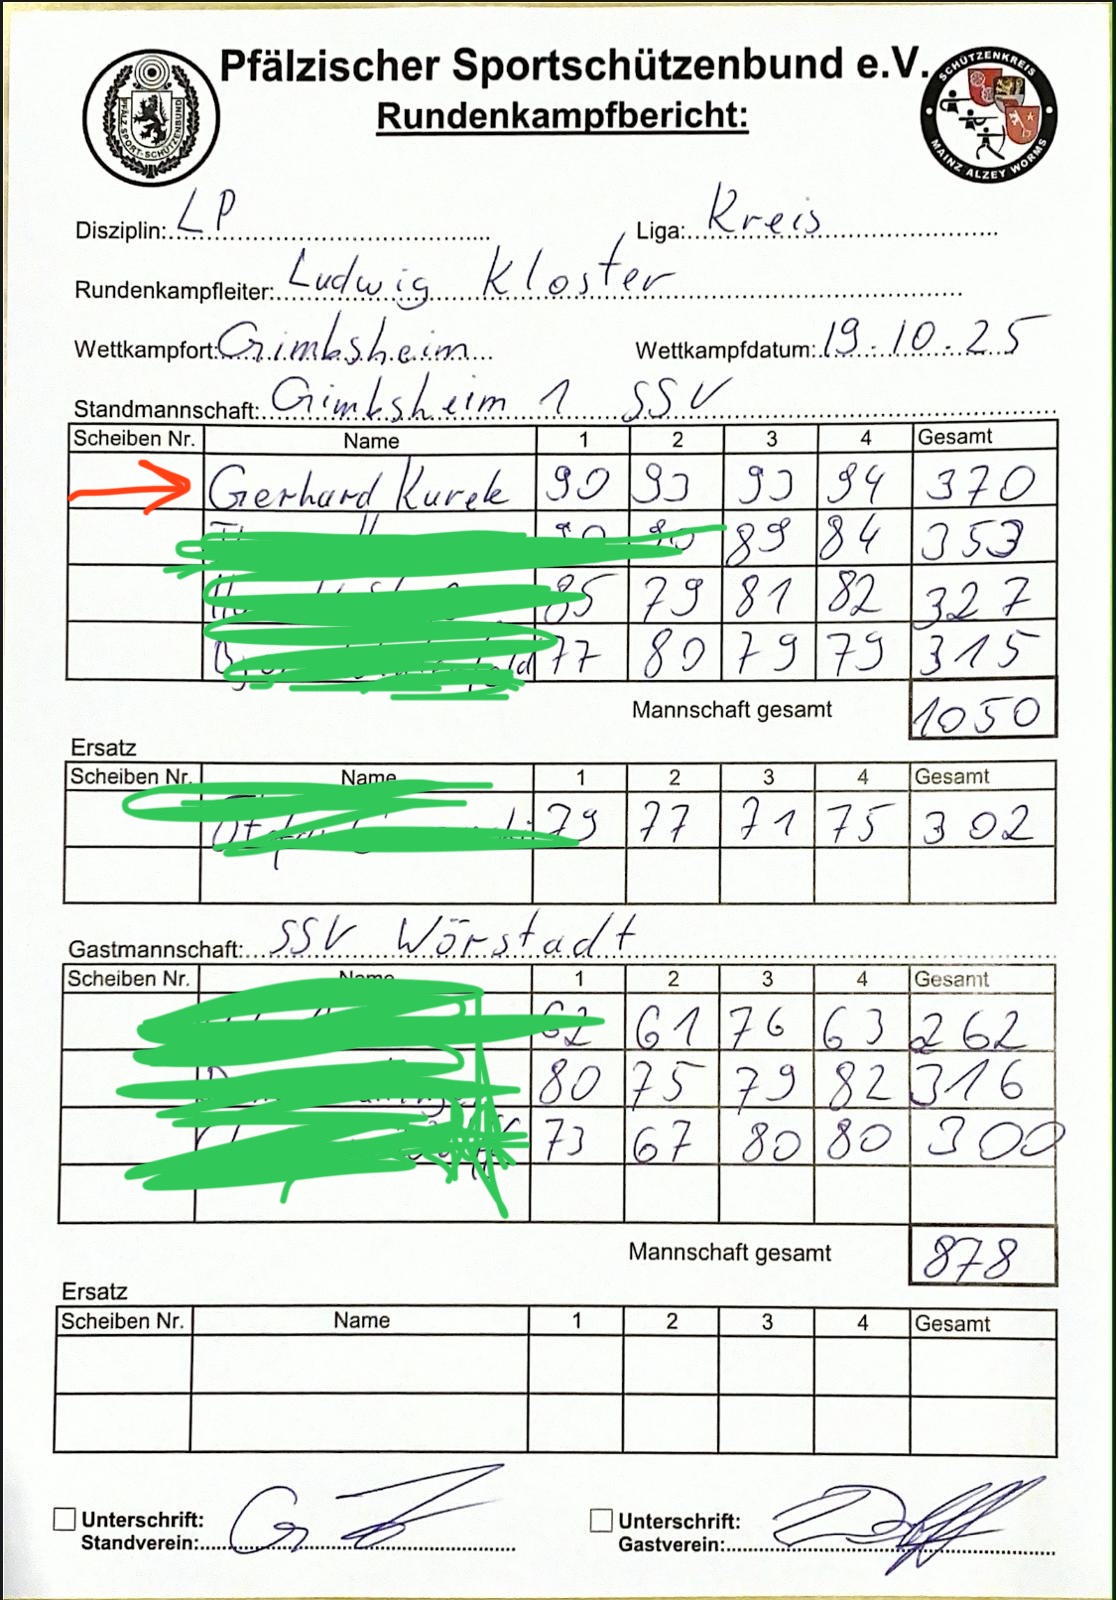 Pfälzischer Sportschützenbund e.V.
Rundenkampfbericht:
PFÄLZ. SPORT-SCHÜTZENBUND
SCHÜTZENKREIS
MAINZ ALZEY WORMS
Disziplin: LP Liga: Kreis
Rundenkampfleiter: Ludwig Kloster
Wettkampfort: Gimbsheim Wettkampfdatum: 19.10.25
Standmannschaft: Gimbsheim 1 SSV
Scheiben Nr. Name 1 2 3 4 Gesamt
Gerhard Kurek 90 93 93 94 370
90 90 89 84 353
85 79 81 82 327
77 80 79 79 315
Mannschaft gesamt 1050
Ersatz
Scheiben Nr. Name 1 2 3 4 Gesamt
79 77 71 75 302
Gastmannschaft: SSV Wörstadt
Scheiben Nr. Name 1 2 3 4 Gesamt
62 61 76 63 262
80 75 79 82 316
73 67 80 80 300
Mannschaft gesamt 878
Ersatz
Scheiben Nr. Name 1 2 3 4 Gesamt
Unterschrift: Unterschrift:
Standverein: Gastverein: